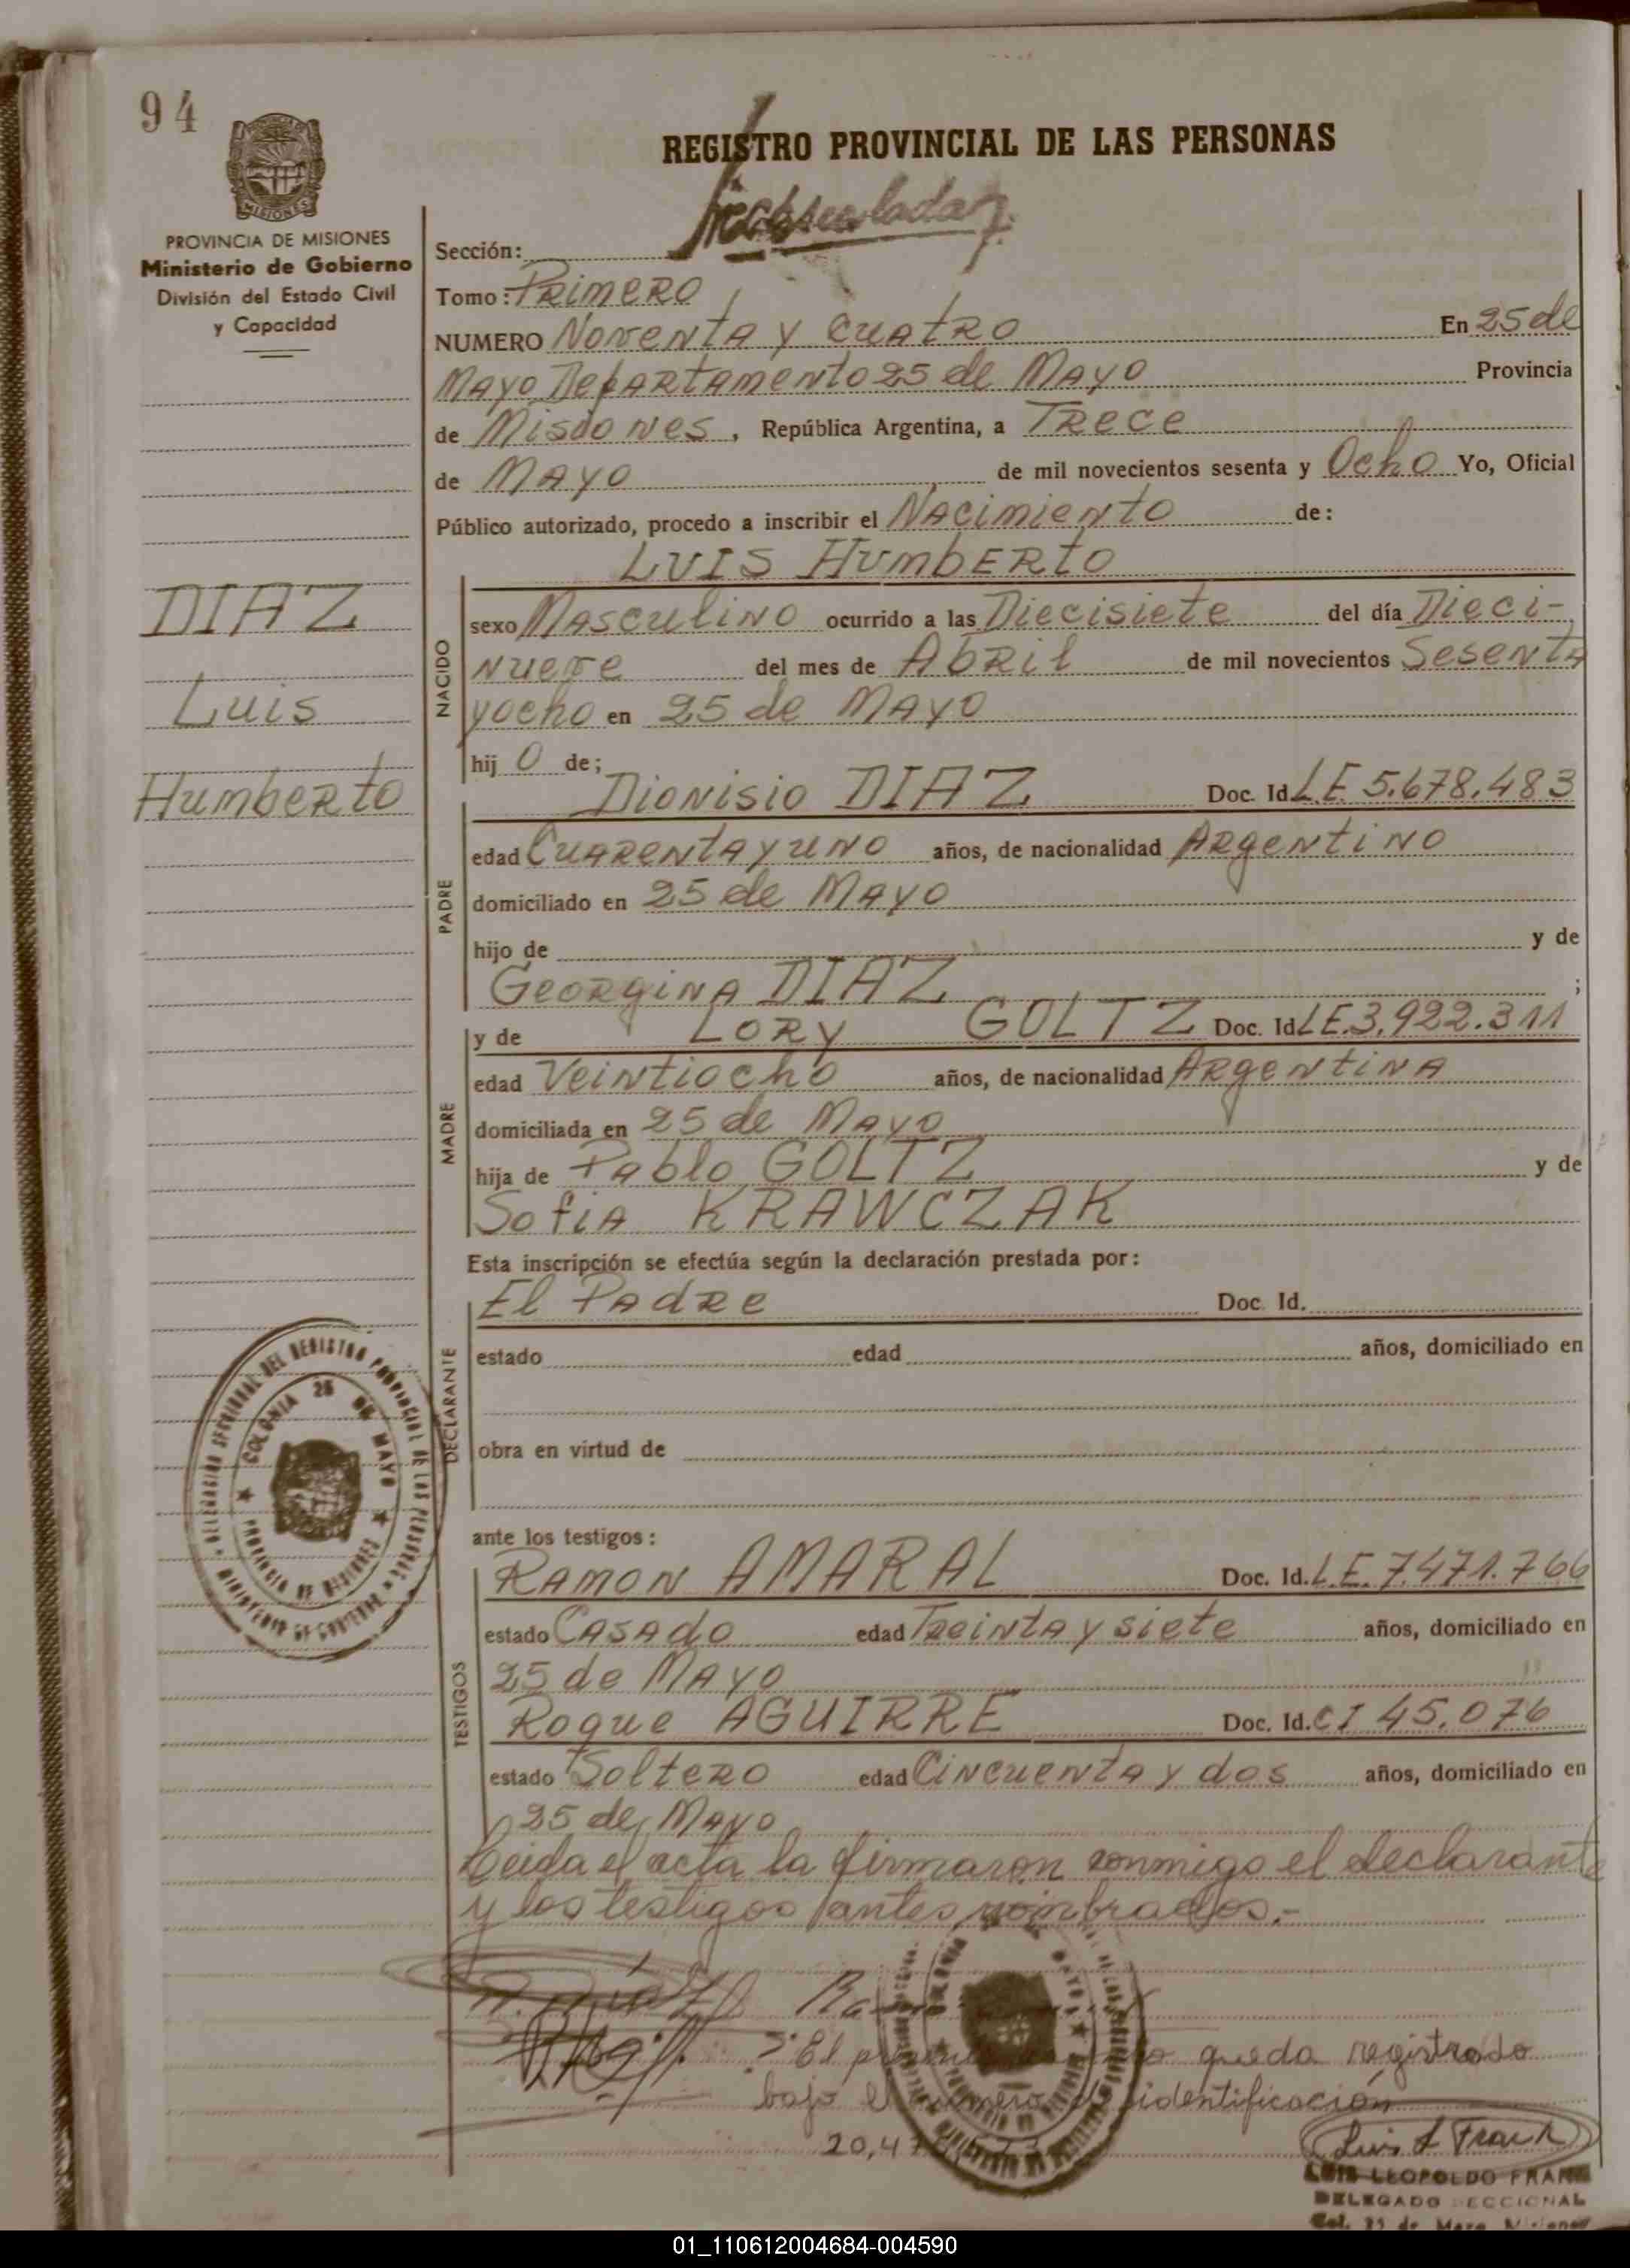 94
REGISTRO PROVINCIAL DE LAS PERSONAS
MISIONES
PROVINCIA DE MISIONES
Ministerio de Gobierno
División del Estado Civil
y Capacidad
Sección:
Tomo: Primero
NUMERO Noventa y Cuatro En 25 de
Mayo Departamento 25 de Mayo Provincia
de Misiones, República Argentina, a Trece
de Mayo de mil novecientos sesenta y Ocho Yo, Oficial
Público autorizado, procedo a inscribir el Nacimiento de:
LUIS HUMBERTO
DIAZ
Luis
Humberto
NACIDO
sexo Masculino ocurrido a las Diecisiete del día Dieci-
nueve del mes de Abril de mil novecientos Sesenta
yocho en 25 de Mayo
hij o de;
Dionisio DIAZ Doc. Id. L.E. 5.678.483
PADRE
edad Cuarenta y uno años, de nacionalidad Argentino
domiciliado en 25 de Mayo
hijo de y de
Georgina DIAZ ;
y de LORY GOLTZ Doc. Id. L.E. 3.922.311
MADRE
edad Veintiocho años, de nacionalidad Argentina
domiciliada en 25 de Mayo
hija de Pablo GOLTZ y de
Sofia KRAWCZAK
Esta inscripción se efectúa según la declaración prestada por:
El Padre Doc. Id.
DECLARANTE
estado edad años, domiciliado en
obra en virtud de
DELEGACION SECCIONAL DEL REGISTRO PROVINCIAL DE LAS PERSONAS
COLONIA 25 DE MAYO
PROVINCIA DE MISIONES
MINISTERIO DE GOBIERNO
ante los testigos:
Ramon AMARAL Doc. Id. L.E. 7.471.766
TESTIGOS
estado Casado edad Treinta y siete años, domiciliado en
25 de Mayo
Roque AGUIRRE Doc. Id. C I 45.076
estado Soltero edad Cincuenta y dos años, domiciliado en
25 de Mayo
Leida el acta la firmaron conmigo el declarante
y los testigos antes nombrados.-
El queda registrado
bajo el de identificación
Luis L Frank
LUIS LEOPOLDO FRANK
DELEGADO SECCIONAL
Col. 25 de Mayo Misiones
01_110612004684-004590